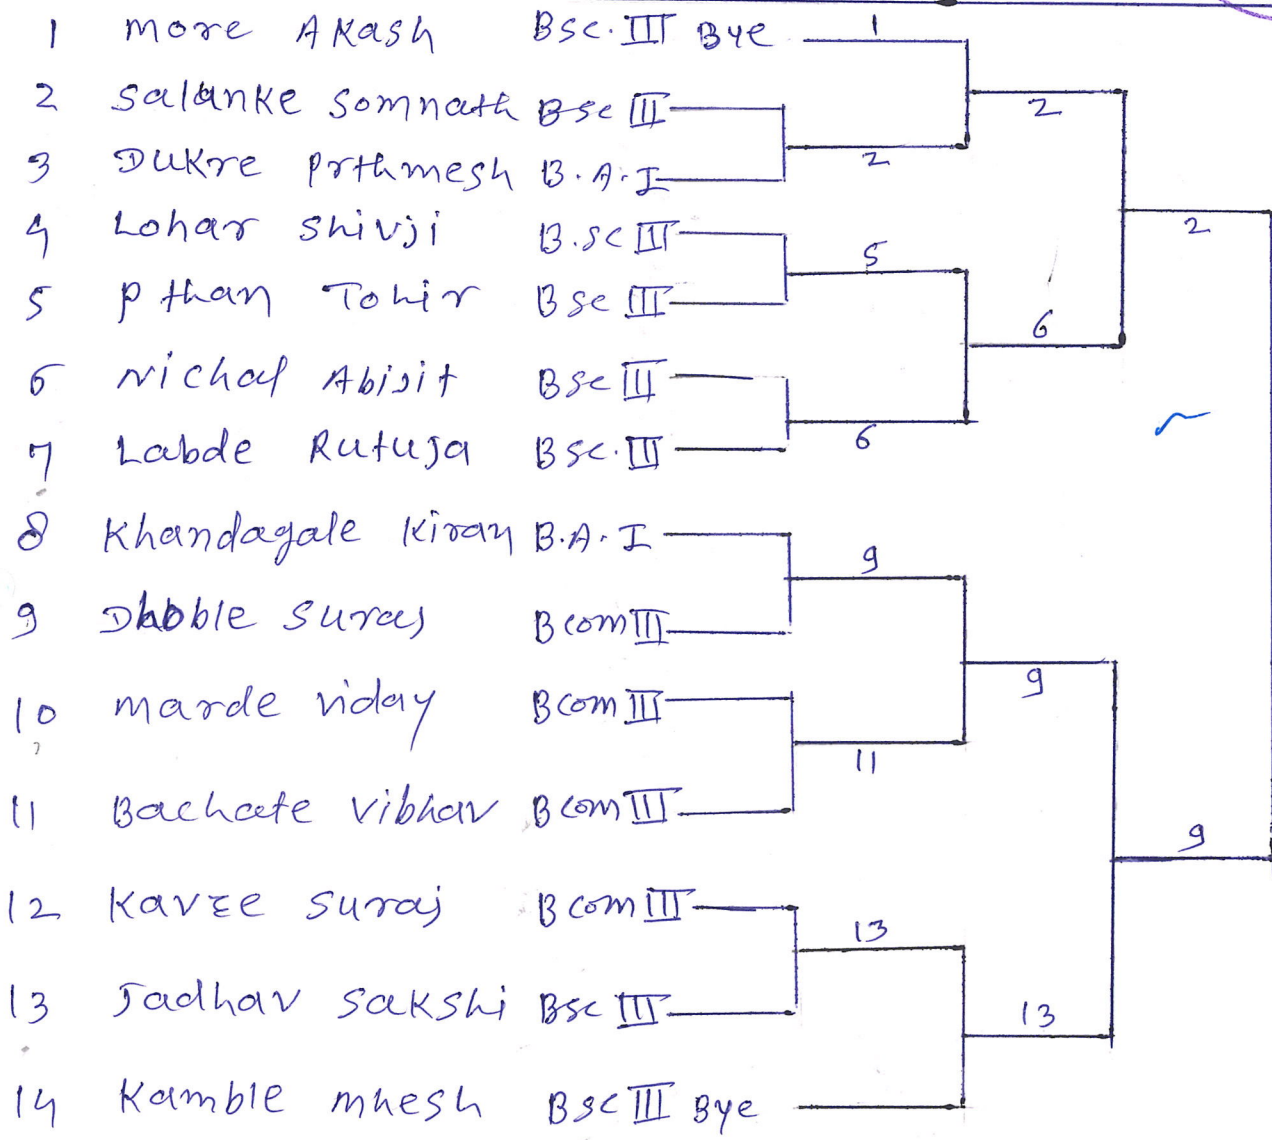 1 More Akash Bsc. III Bye 1
2 Salunke Somnath Bsc II 2
2
3 Dukre Prthmesh B.A.I 2
4 Lohar Shivji B.sc III 2
5 Pthan Tohir Bsc III 5
6
6 Nichal Abijit Bsc III
7 Labde Rutuja Bsc. III 6
8 Khandagale Kiran B.A. I 9
9 Dhoble Suraj Bcom III
10 marde viday Bcom III 9
11 Bachate vibhav Bcom III 11
9
12 Kavze Suraj Bcom III 13
13 Jadhav Sakshi Bsc III 13
14 Kamble mhesh Bsc III Bye